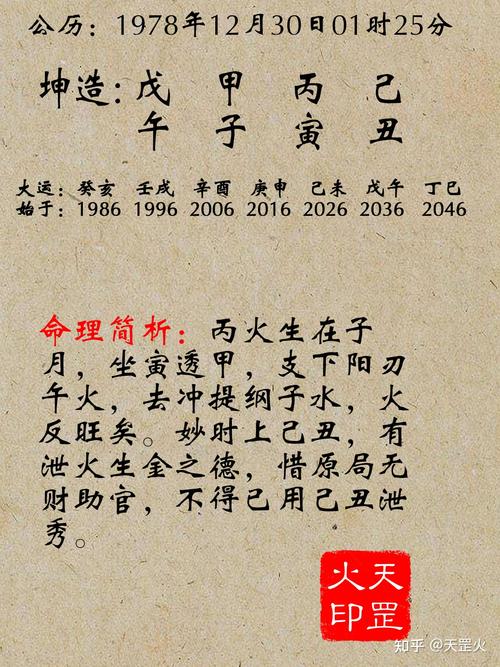 公历：1978年12月30日01时25分
坤造：戊 甲 丙 己
午 子 寅 丑
大运：癸亥 壬戌 辛酉 庚申 己未 戊午 丁巳
始于：1986 1996 2006 2016 2026 2036 2046
命理简析：丙火生在子
月，坐寅透甲，支下阳刃
午火，去冲提纲子水，火
反旺矣。妙时上己丑，有
泄火生金之德，惜原局无
财助官，不得已用己丑泄
秀。
天罡
火印
知乎 @天罡火